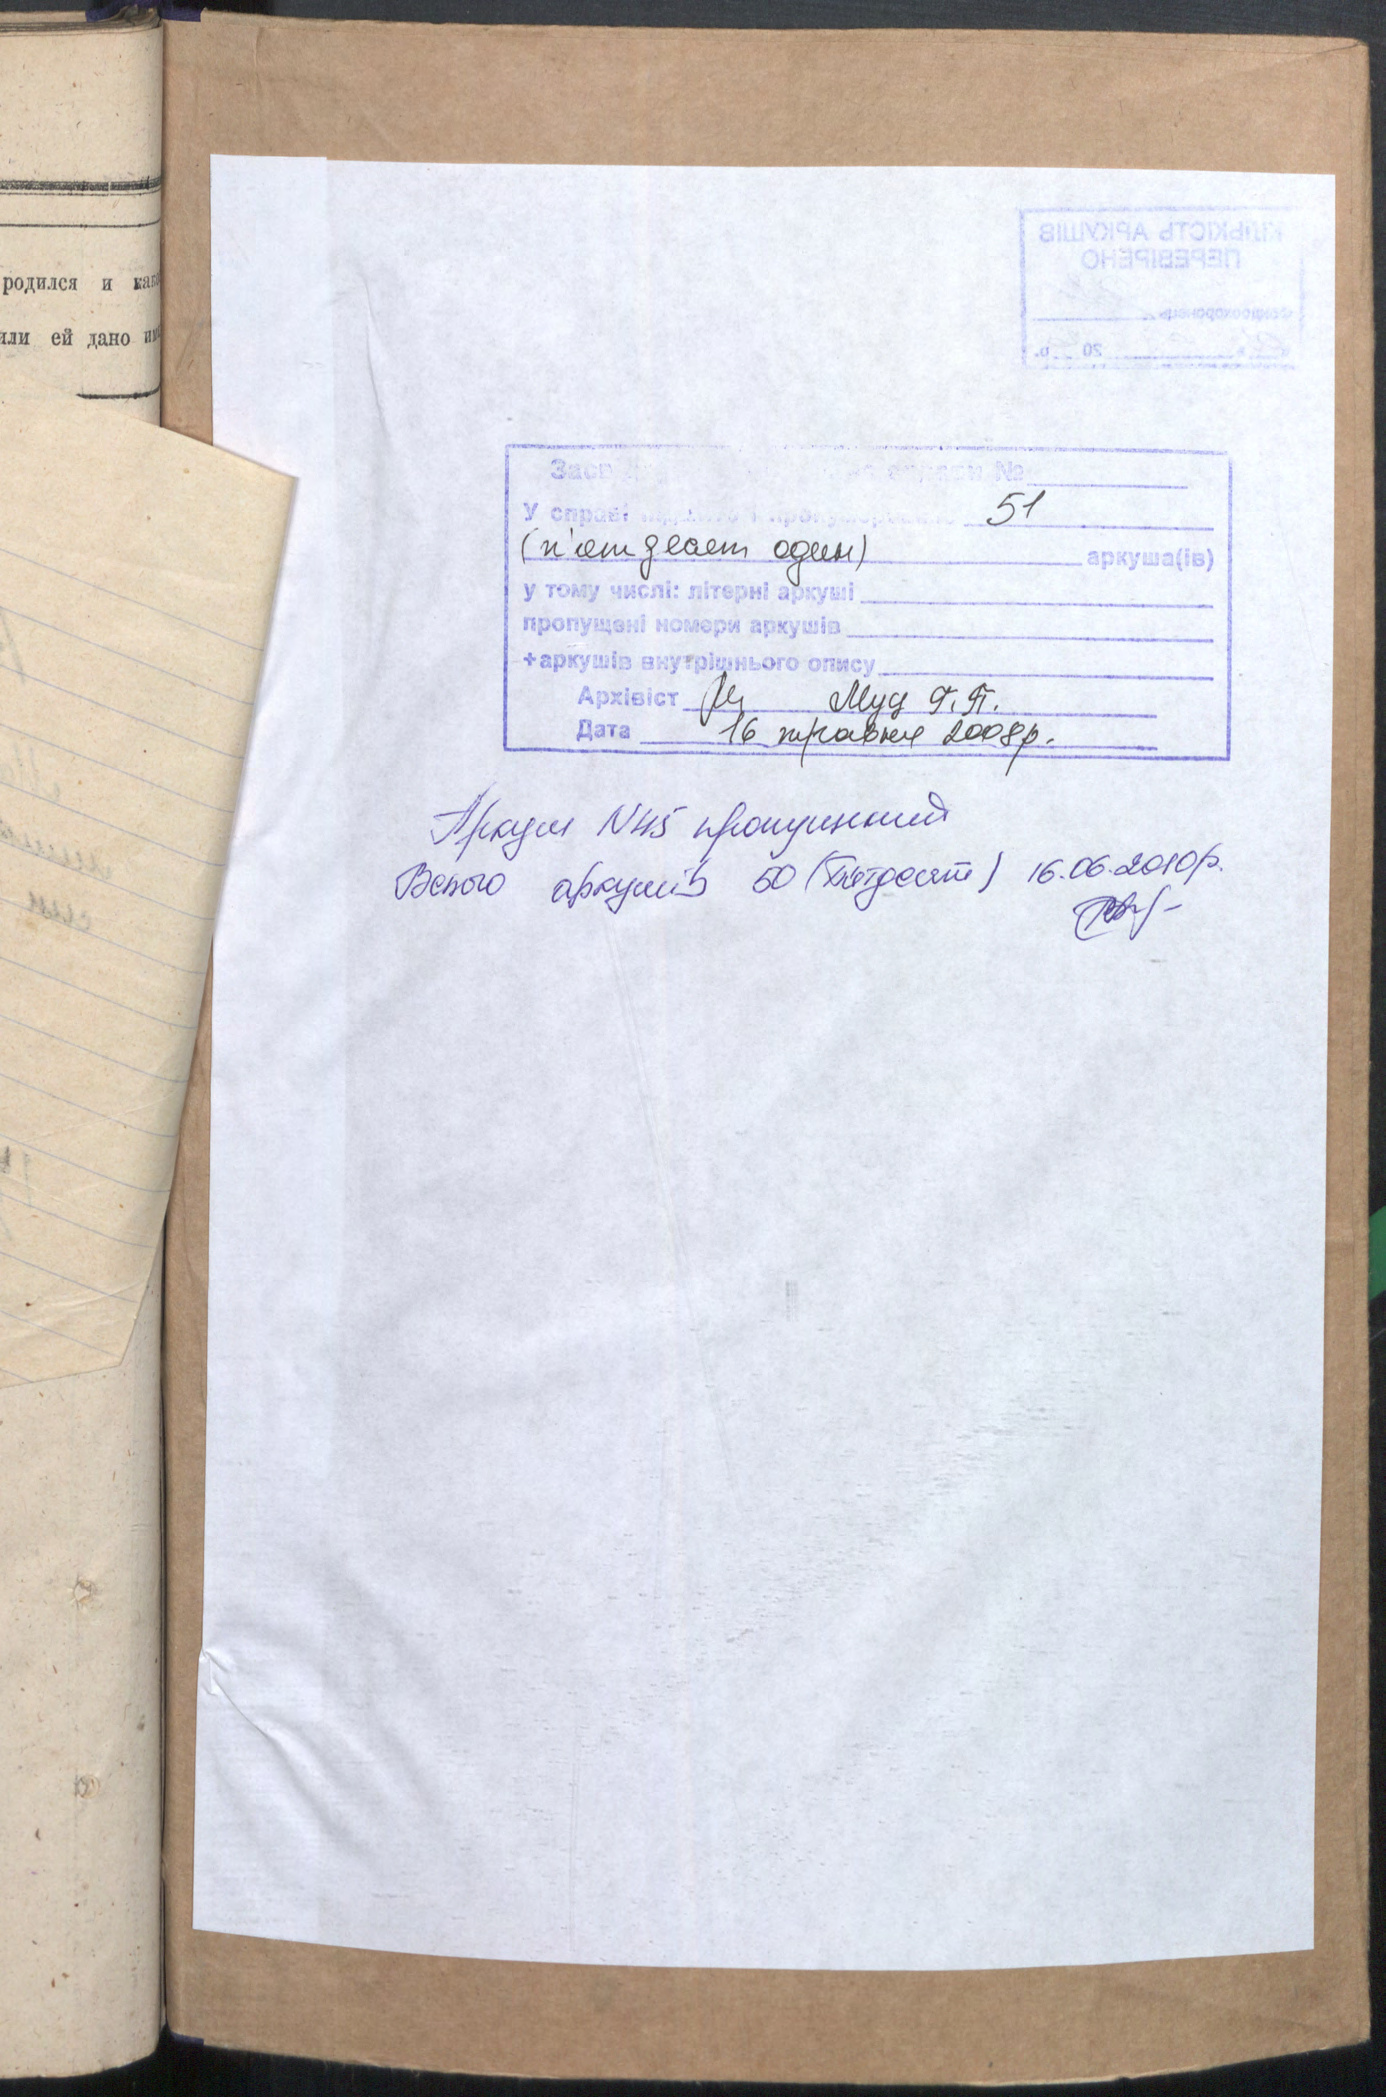 родился и
или ей дано
КІЛЬКІСТЬ АРКУШІВ
ПЕРЕВІРЕНО
20 р.
№
У справі 51
(п'ятдесят один) аркуша(ів)
у тому числі: літерні аркуші
пропущені номери аркушів
+аркушів внутрішнього опису
Архівіст
Дата 16 травня 2008р.
Аркуш N45 пропущений
Всього аркушів 50 (п'ятдесят) 16.06.2010р.